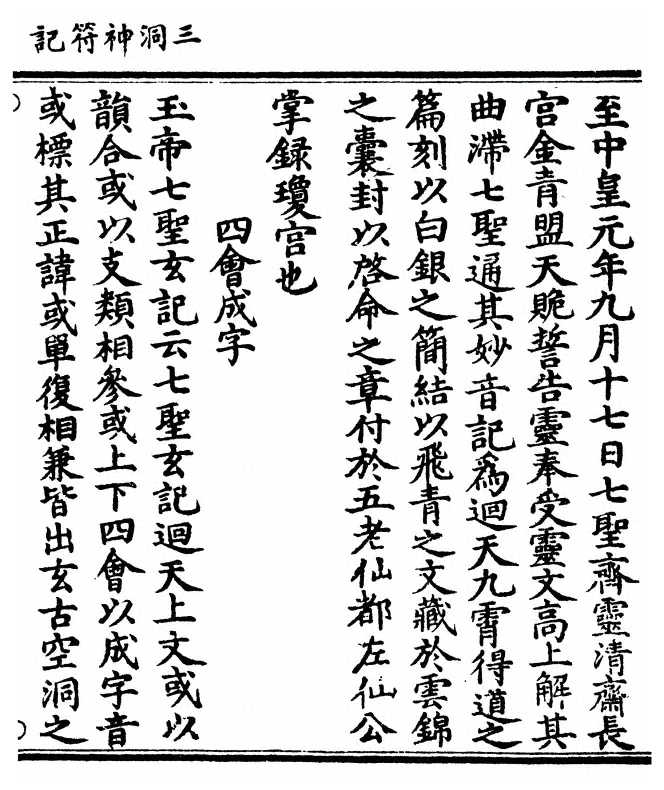 三洞神符記
至中皇元年九月十七日七聖齊靈清齋長
宮金青盟天貺誓告靈奉受靈文高上解其
曲滯七聖通其妙音記爲迴天九霄得道之
篇刻以白銀之簡結以飛青之文藏於雲錦
之囊封以啓命之章付於五老仙都左仙公
掌録瓊宮也
四會成字
玉帝七聖玄記云七聖玄記迴天上文或以
韻合或以支類相參或上下四會以成字音
或標其正諱或單復相兼皆出玄古空洞之